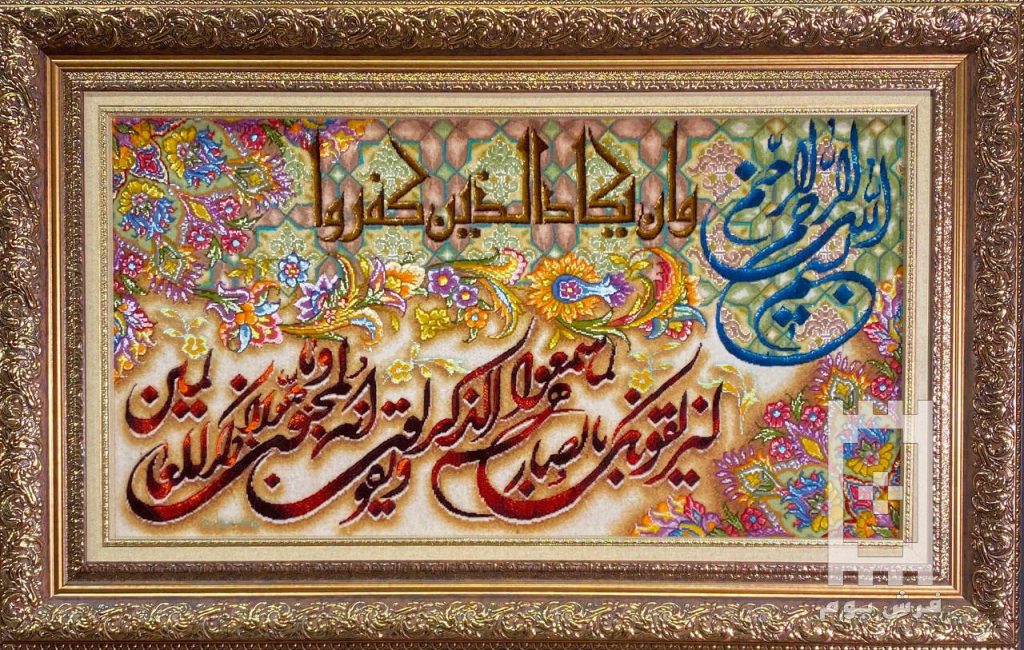 بسم الله الرحمن الرحیم
وان یکاد الذین کفروا
لیزلقونک بابصارهم لما سمعوا الذکر ویقولون انه لمجنون وما هو الا ذکر للعالمین
فرش بوم